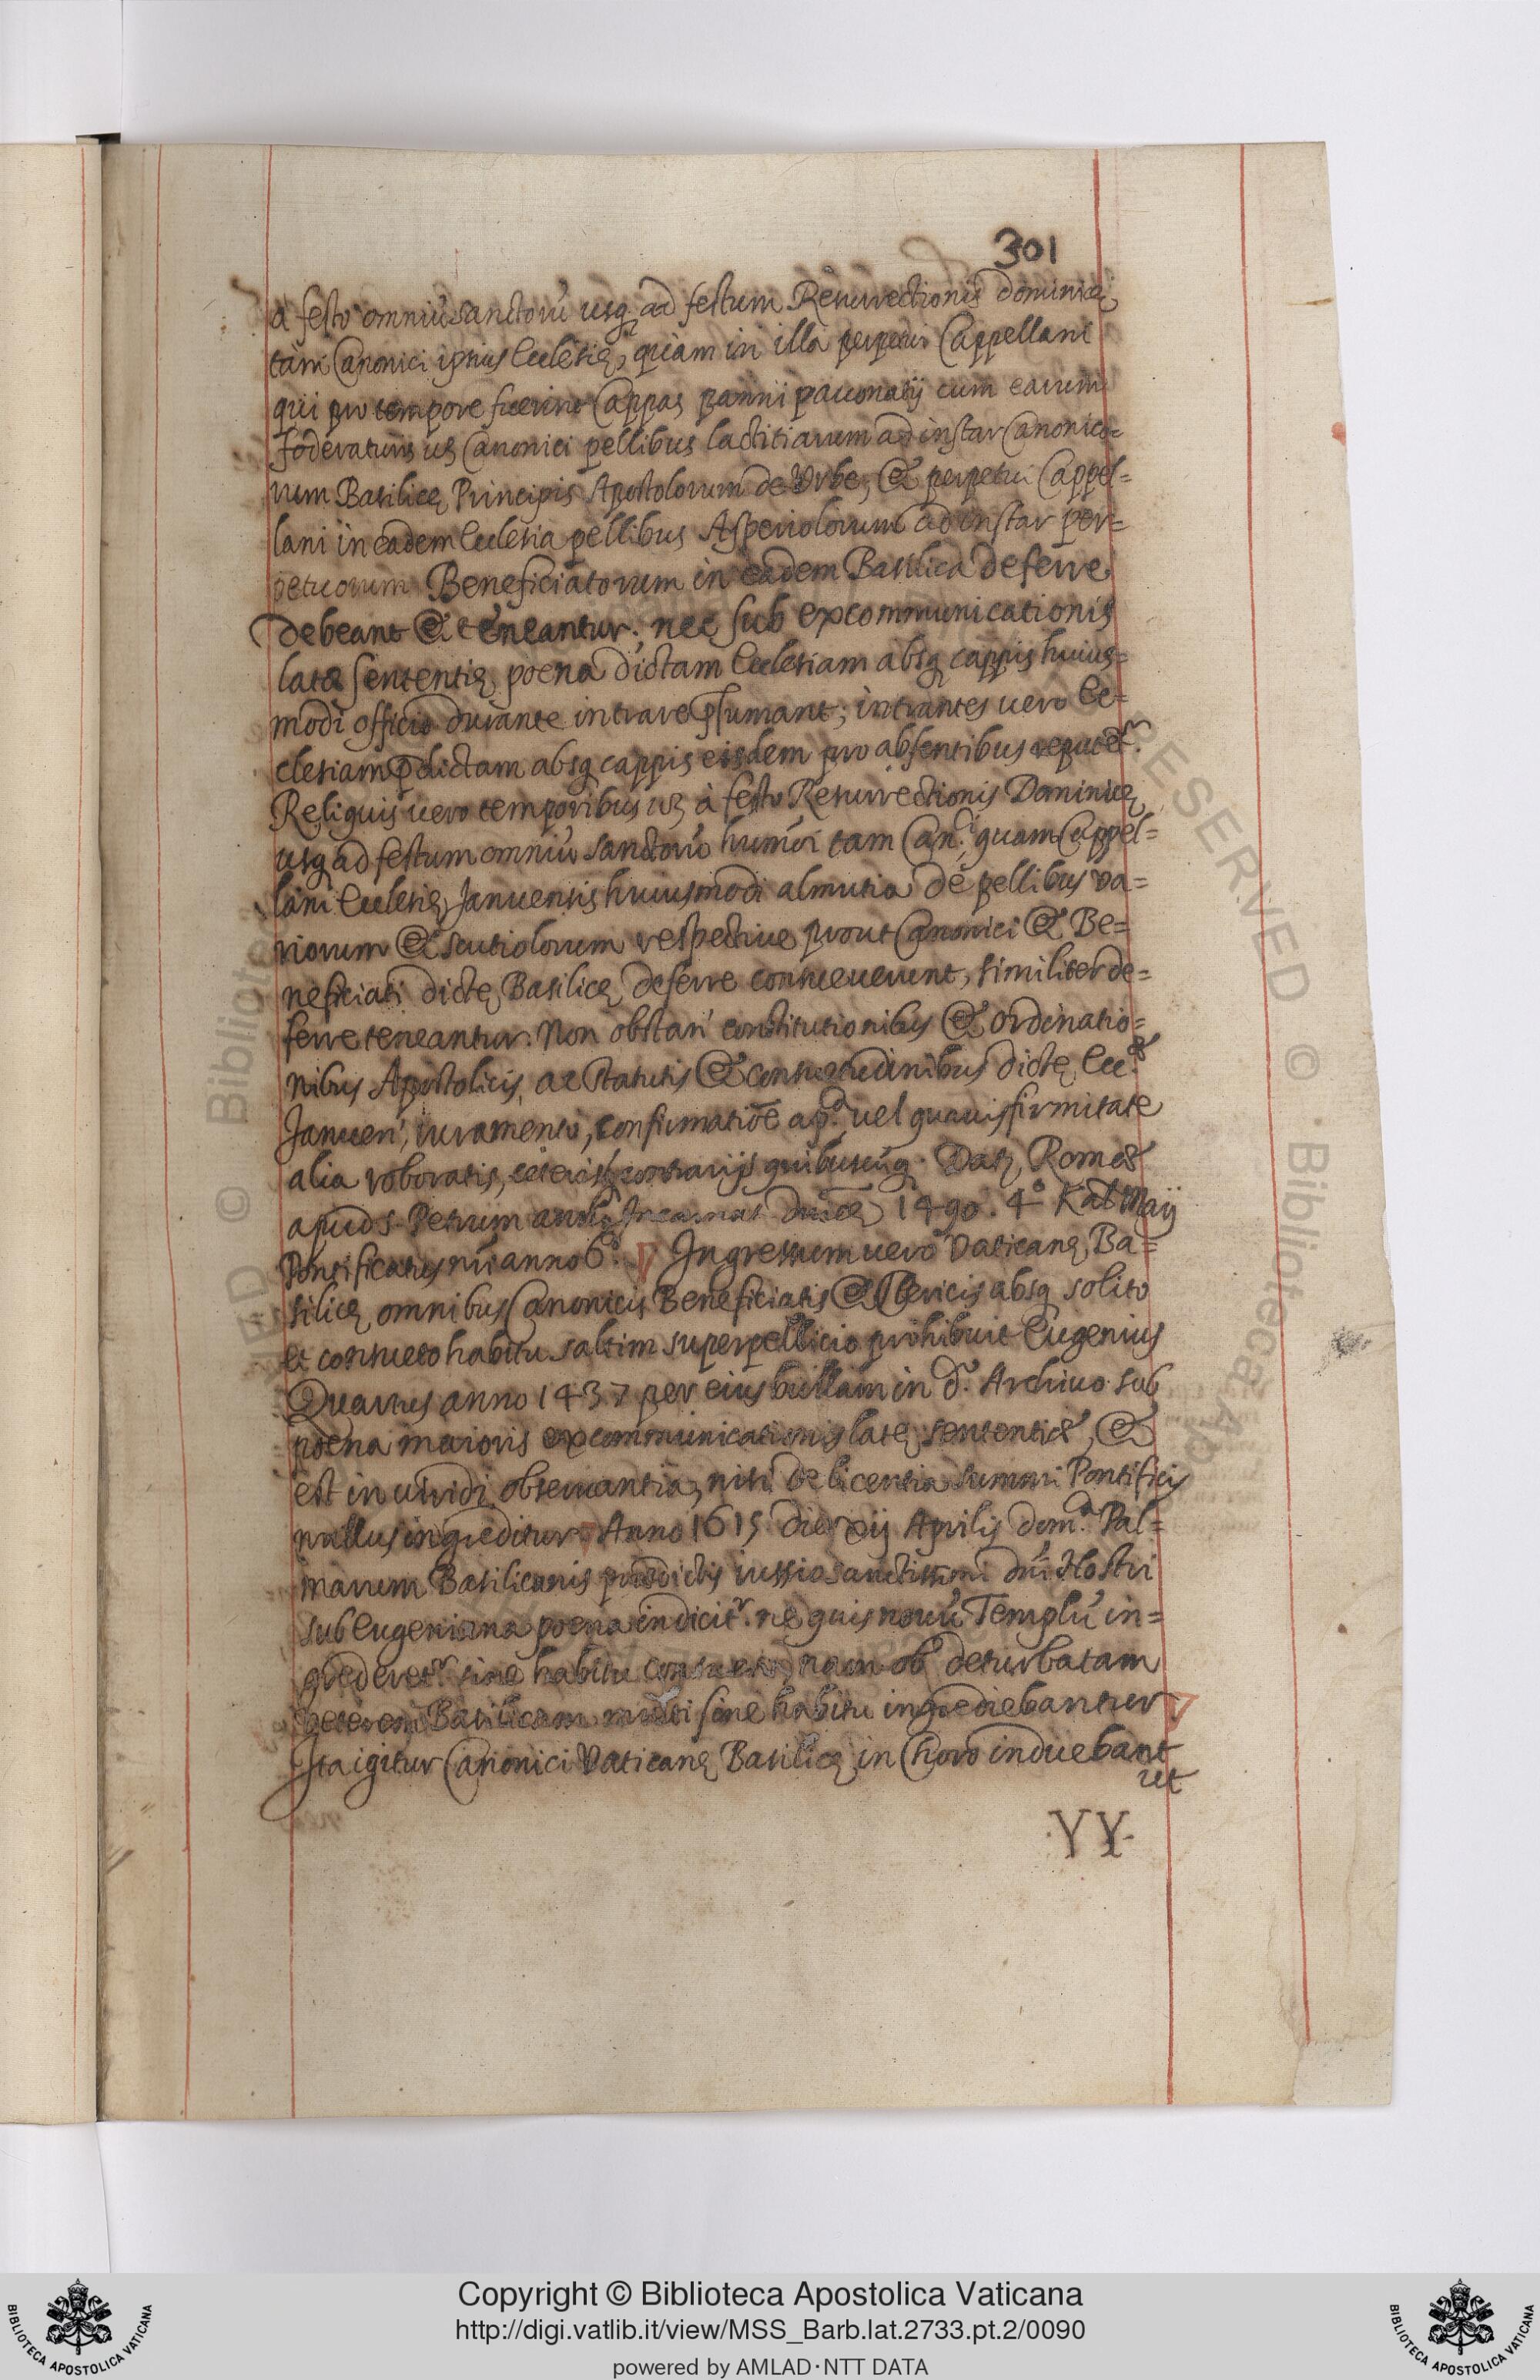 301
a festo omniū sanctorū usq; ad festum Resurrectionis dominicæ
tam Canonici ipsius Ecclesię, quàm in illa perpetui Cappellani
qui pro tempore fuerint Cappas panni pauonatij cum earum
foderaturis uz Canonici pellibus lactitiarum ad instar Canonico=
rum Basilicę Principis Apostolorum de Vrbe, & perpetui Cappel=
lani in eadem Ecclesia pellibus Asperiolorum ad instar per=
petuorum Beneficiatorum in eadem Basilica deferre
debeant & teneantur; nec sub excommunicationis
latæ sententię poena dictam Ecclesiam absq; cappis huius=
modi officio durante intrare p̄sumant; intrantes uero Ec=
clesiam p̄dictam absq; cappis eisdem pro absentibus reputēt.r
Reliquis uero temporibus uz à festo Resurrectionis Dominicę
usq; ad festum omniū sanctorū humōi tam Can.ci, quam Cappel=
lani Ecclesię Januensis huiusmodi almutia de pellibus va=
riorum & scutiolorum respectiue prout Canonici & Be=
neficiati dictę Basilicę deferre consueuerunt, similiter de=
ferre teneantur. Non obstan' constitutionibus & ordinatio=
nibus Apostolicis, ac statutis & consuetudinibus dictę Ecc.æ
Januen', iuramento, confirmatiōe ap.ca uel quauis firmitate
alia roboratis, ceterisq; contrarijs quibuscūq;. Datz Romæ
apud s. Petrum anno Incarnat dn̄icæ 1490. 4º Kal Maij
Pontificatus nr̄i anno 6º. Ingressum uero Vaticanę Ba=
silicę omnibus Canonicis Beneficiatis & Clericis absq; solito
et consueto habitu saltim superpellicio prohibuit Eugenius
Quartus anno 1437 per eius bullam in d.º Archiuo sub
poena maioris excommunicationis latę sententiæ, &
est in uiridi obseruantia, nisi de licentia summi Pontificis
nullus ingreditur. Anno 1615 die xij Aprilis dom.ca Pal=
marum Basilicanis prædictis iussio sanctissimi dn̄i Nostri
sub eugeniana poena indicit.r ne quis nouū Templū in=
grederet.r sine habitu consueto, nam ob deturbatam
ueterem Basilicam multi sine habitu ingrediebantur
Ita igitur Canonici Vaticanę Basilicę in Choro induebant
ut
·YY·
Copyright © Biblioteca Apostolica Vaticana
http://digi.vatlib.it/view/MSS_Barb.lat.2733.pt.2/0090
powered by AMLAD·NTT DATA